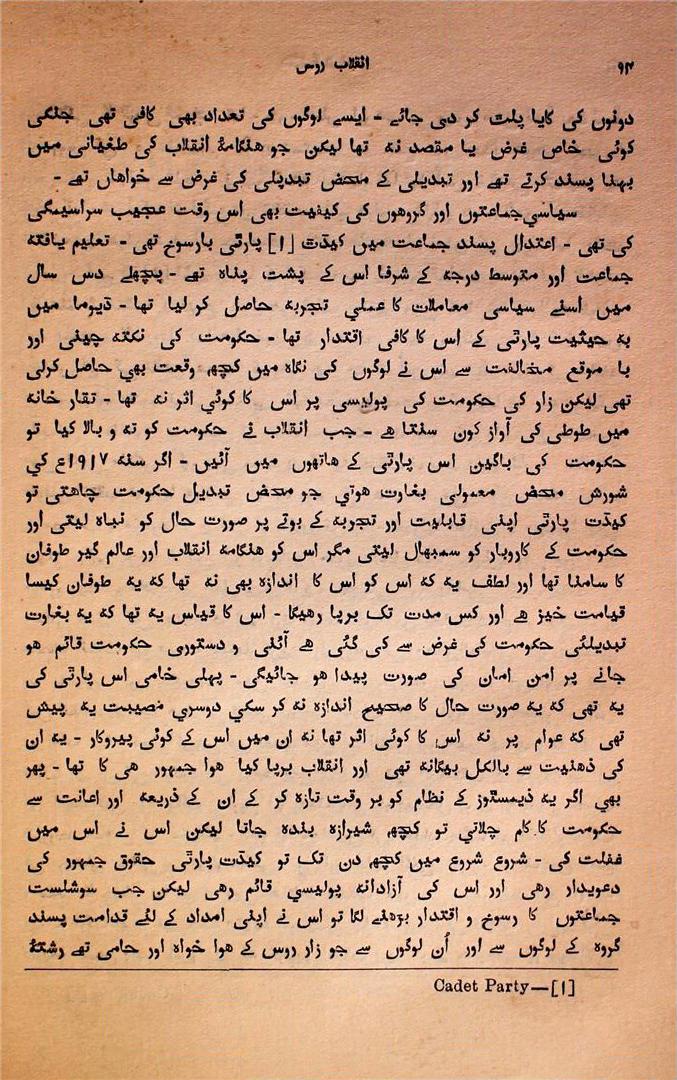 ۹۴ انقلاب روس
دونوں کی کایا پلٹ کر دی جائے - ایسے لوگوں کی تعداد بھی کافی تھی جنکی
کوئی خاص غرض یا مقصد نہ تھا لیکن جو ھنگامۂ انقلاب کی طغیانی میں
بہنا پسند کرتے تھے اور تبدیلی کے محض تبدیلی کی غرض سے خواھاں تھے -
سیاسي جماعتوں اور گروھوں کی کیفیت بھی اس وقت عجیب سراسیمگی
کی تھی - اعتدال پسند جماعت میں کیڈٹ [۱] پارٹی بارسوخ تھی - تعلیم یافتہ
جماعت اور متوسط درجہ کے شرفا اس کے پشت پناہ تھے - پچھلے دس سال
میں اسنے سیاسی معاملات کا عملي تجربہ حاصل کر لیا تھا - ڈیوما میں
بہ حیثیت پارٹی کے اس کا کافی اقتدار تھا - حکومت کی نکتہ چینی اور
با موقع مخالفت سے اس نے لوگوں کی نگاہ میں کچھ وقعت بھي حاصل کرلی
تھی لیکن زار کی حکومت کی پولیسی پر اس کا کوئي اثر نہ تھا - نقار خانہ
میں طوطی کی آواز کون سنتا ھے - جب انقلاب نے حکومت کو تہ و بالا کیا تو
حکومت کی باگیں اس پارٹی کے ھاتھوں میں آئیں - اگر سنہ ۱۹۱۷ع کي
شورش محض معمولی بغاوت ھوتي جو محض تبدیل حکومت چاھتی تو
کیڈٹ پارٹی اپنی قابلیت اور تجربہ کے بوتے پر صورت حال کو نباہ لیتی اور
حکومت کے کاروبار کو سمبھال لیتی مگر اس کو ھنگامہ انقلاب اور عالم گیر طوفان
کا سامنا تھا اور لطف یہ کہ اس کو اس کا اندازہ بھی نہ تھا کہ یہ طوفان کیسا
قیامت خیز ھے اور کس مدت تک برپا رھیگا - اس کا قیاس یہ تھا کہ یہ بغاوت
تبدیلئی حکومت کی غرض سے کی گئی ھے آئنی و دستوری حکومت قائم ھو
جانے پر امن امان کی صورت پیدا ھو جائیگی - پہلی خامی اس پارٹی کی
یہ تھی کہ یہ صورت حال کا صحیح اندازہ نہ کر سکي دوسري مصیبت یہ پیش
تھی کہ عوام پر نہ اس کا کوئی اثر تھا نہ ان میں اس کے کوئی پیروکار - یہ ان
کی ذھنیت سے بالکل بیگانہ تھی اور انقلاب برپا کیا ھوا جمہور ھی کا تھا - پھر
بھی اگر یہ ذیمستوز کے نظام کو بر وقت تازہ کر کے ان کے ذریعہ اور اعانت سے
حکومت کا کام چلاتی تو کچھ شیرازہ بندہ جاتا لیکن اس نے اس میں
غفلت کی - شروع شروع میں کچھ دن تک تو کیڈٹ پارٹی حقوق جمہور کی
دعویدار رھی اور اس کی آزادانہ پولیسي قائم رھی لیکن جب سوشلست
جماعتوں کا رسوخ و اقتدار بڑھنے لگا تو اس نے اپنی امداد کے لئے قدامت پسند
گروہ کے لوگوں سے اور اُن لوگوں سے جو زار روس کے ھوا خواہ اور حامی تھے رشتۂ
Cadet Party—[۱]